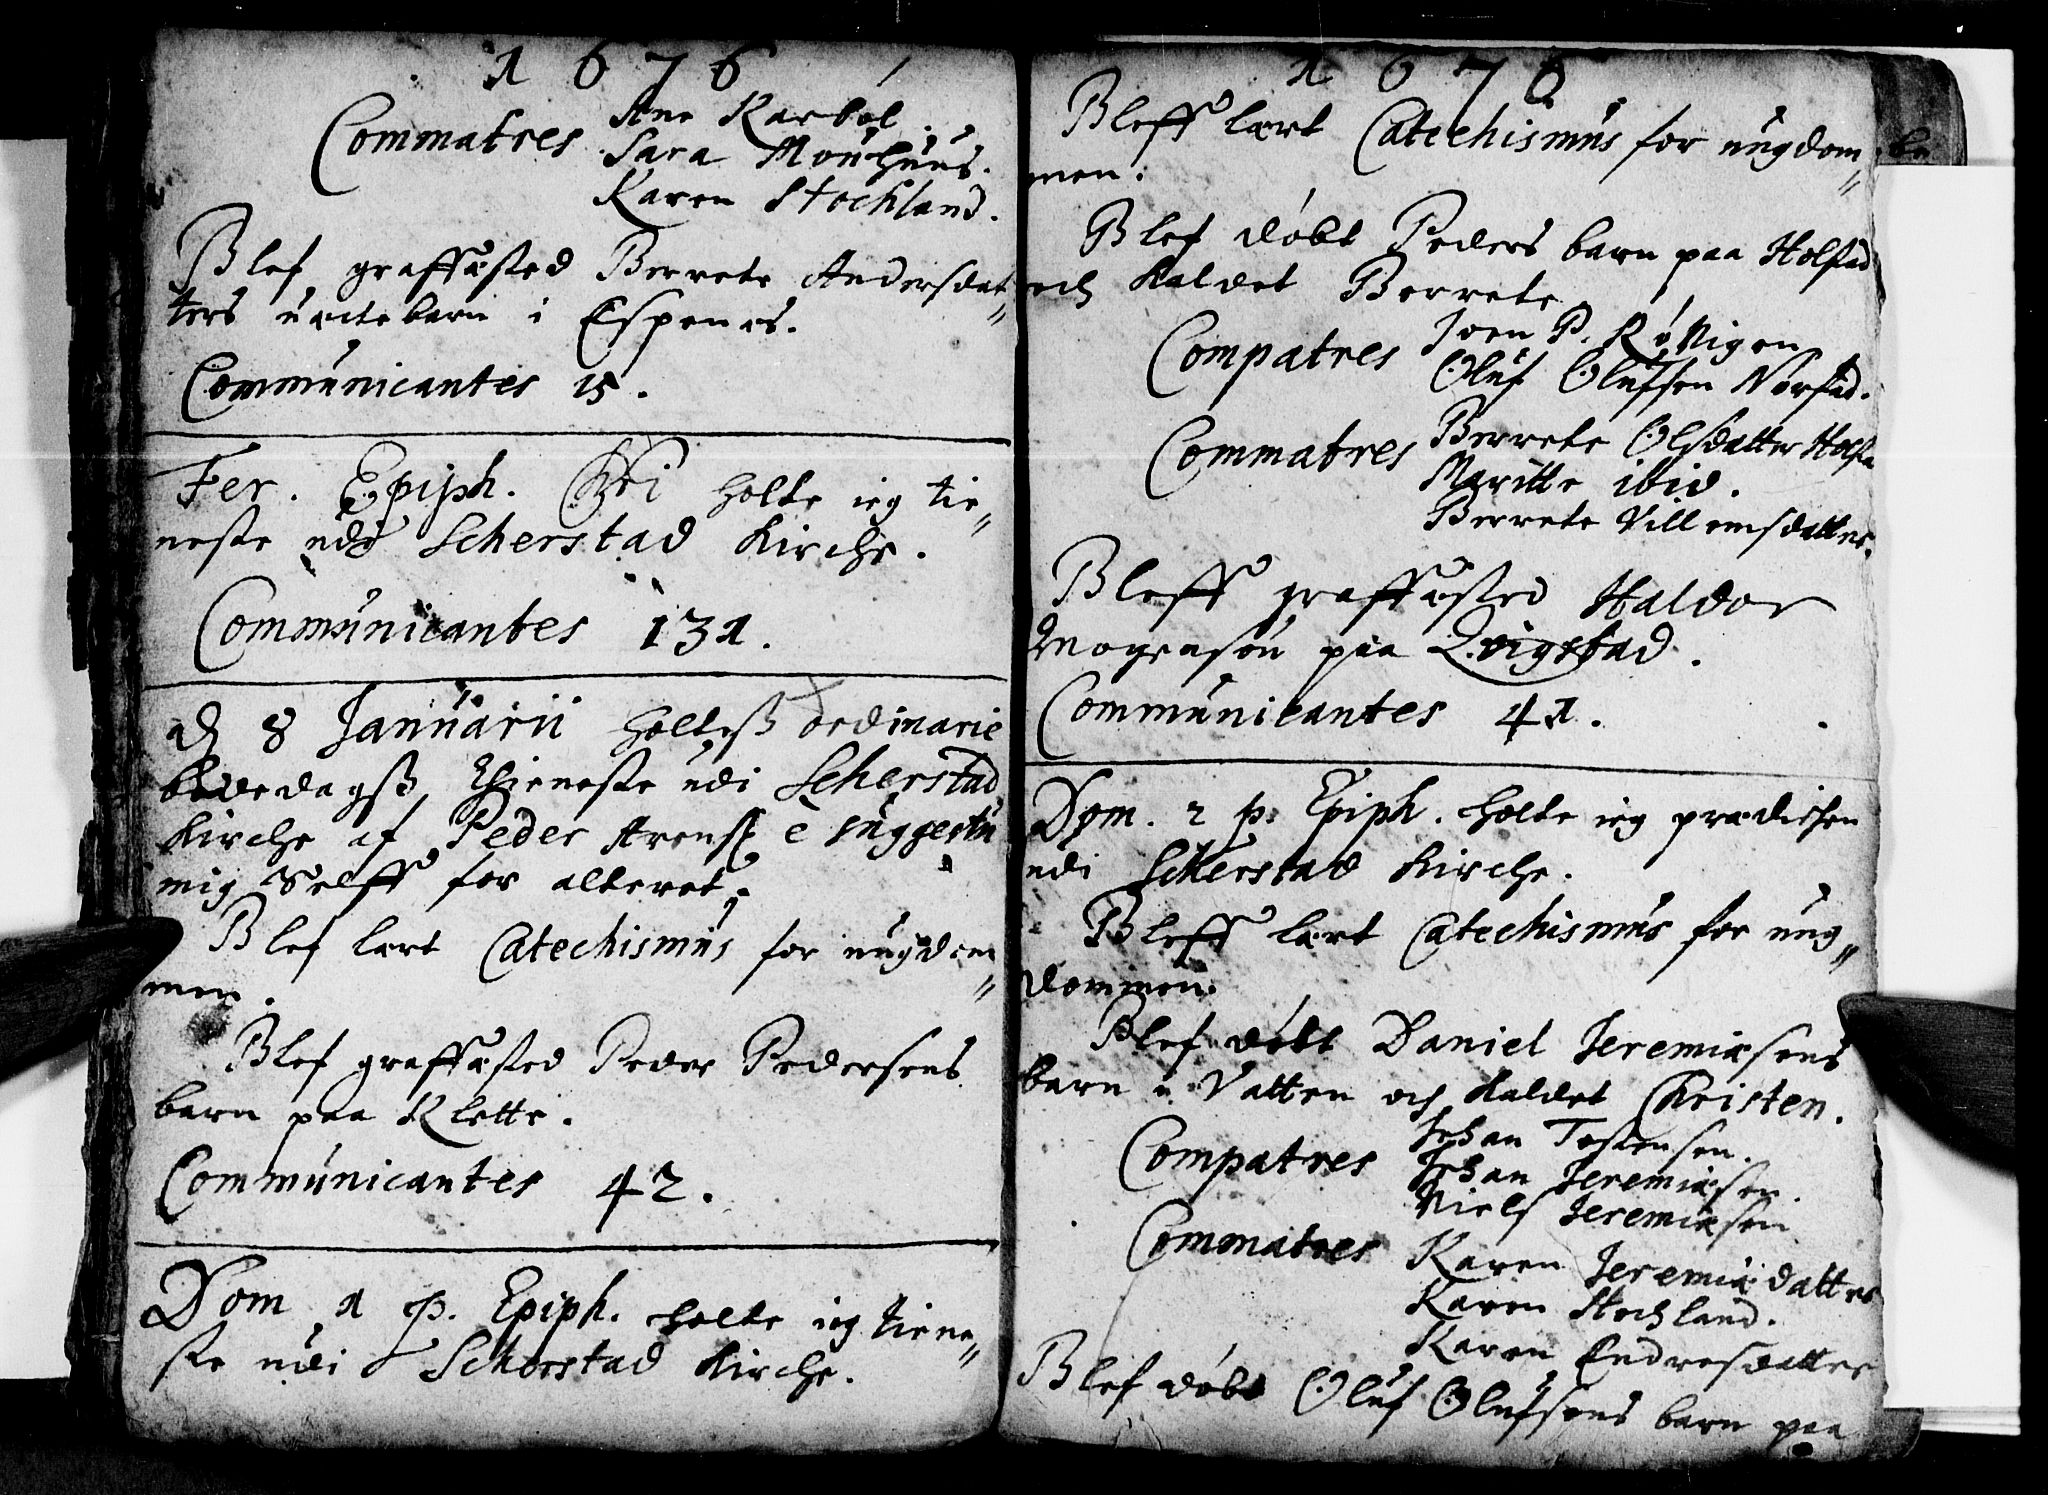 1676
Commatres Ane Karbøl.
Sara Mouhuus.
Karen Stochland.
Blef graffæsted Berrete Andersdat„
ters uæctebarn i Espenes.
Communicantes 15.
Fer. Epiph. Chri holte ieg tie„
neste udi Scherstad Kirche.
Communicantes 131.
d 8 Januarii holtesß ordinarie
bededagsß thieneste udi Scherstad
Kirche af Peder Arens. e suggestu
mig selff for alteret.
Blef lært Catechismus for ungdom„
men.
Blef graffæsted Peder Pedersens
barn paa Klette.
Communicantes 42.
Dom 1 p. Epiph. holte ieg tiene„
ste udi Scherstad Kirche.
1676
Bleff lært Catechismus for ungdom„
men.
Blef døbt Peders barn paa Holstad
och kaldet Berrete.
Compatres Joen P. Rølligen
Oluf Olufsen Norstad.
Commatres Berrete Olsdatter Holsta
Maritte ibid.
Berrete Villemsdatter.
Bleff graffæsted Haldor
Mogensøn paa Qvigstad.
Communicantes 41.
Dom. 2 p. Epiph. holte ieg prædichen
udi Scherstad Kirche.
Bleff lært Catechismus for ung„
dommen.
Blef døbt Daniel Jeremiæsens
barn i Vatten och kaldet Christen.
Compatres Johan Tostensen.
Johan Jeremiæsen.
Niels Jeremiæsen
Commatres Karen Jeremiædatter
Karen Stochland.
Karen Endresdatter
Blef døbt Oluf Olufsens barn paa